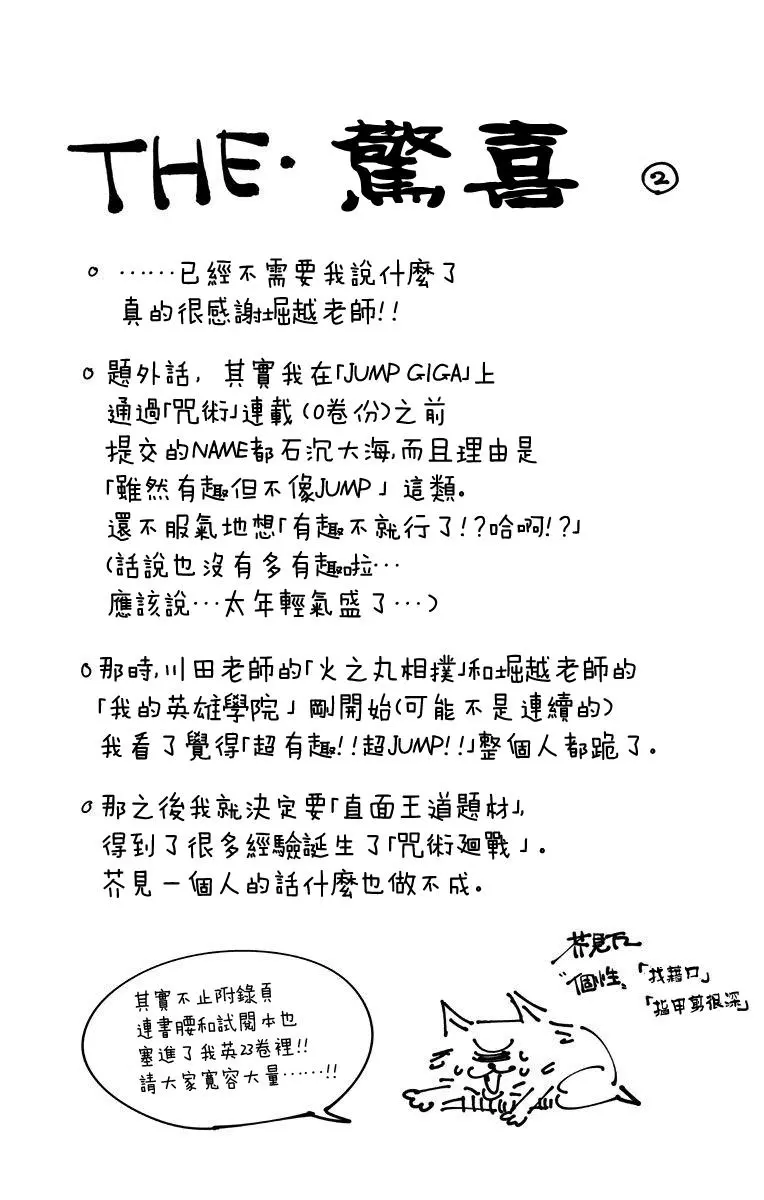 THE・驚喜 ②
。……已經不需要我說什麼了
真的很感謝堀越老師!!
。題外話, 其實我在「JUMP GIGA」上
通過「咒術」連載(0卷份)之前
提交的NAME都石沉大海,而且理由是
「雖然有趣但不像JUMP」這類。
還不服氣地想「有趣不就行了!?哈啊!?」
(話說也沒有多有趣啦…
應該說…太年輕氣盛了…)
。那時,川田老師的「火之丸相撲」和堀越老師的
「我的英雄學院」剛開始(可能不是連續的)
我看了覺得「超有趣!!超JUMP!!」整個人都跪了。
。那之後我就決定要「直面王道題材」,
得到了很多經驗誕生了「咒術廻戰」。
芥見一個人的話什麼也做不成。
其實不止附錄頁
連書腰和試閱本也
塞進了我英23卷裡!!
請大家寬容大量……!!
芥見下々
〝個性〟「找藉口」
「指甲剪很深」